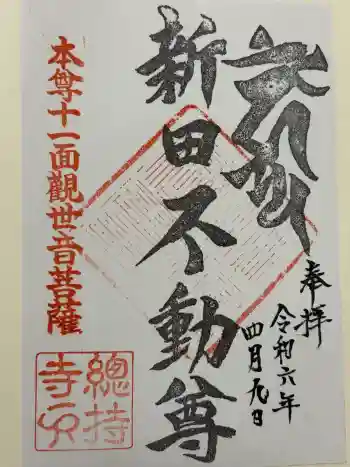 奉拝
令和六年
四月九日
新田不動尊
本尊十一面觀世音菩薩
總持
寺印